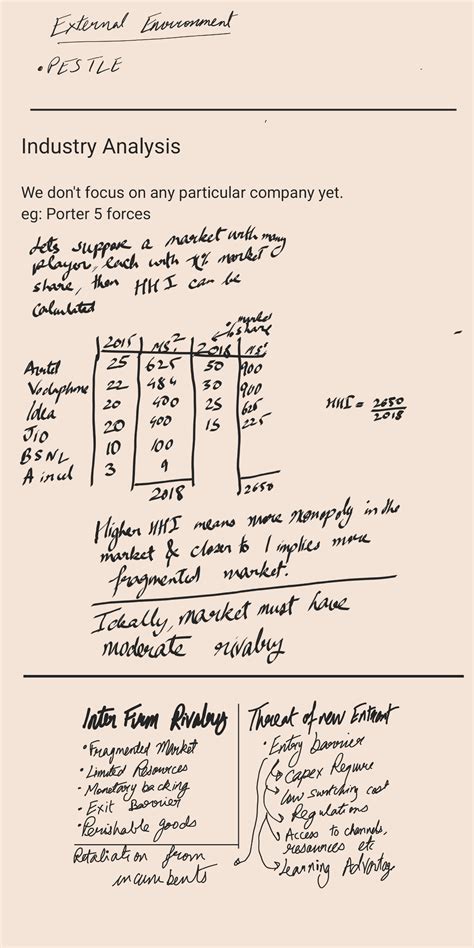 External Environment
• PESTLE
Industry Analysis
We don't focus on any particular company yet.
eg: Porter 5 forces
Lets suppose a market with many
player, each with x% market
share, then HHI can be
calculated
market
share
2015 MS² 2018 MS²
Airtel 25 625 50 900
Vodaphone 22 484 30 900
Idea 20 400 25 625
JIO 20 400 15 225
BSNL 10 100
Aircel 3 9
2018 2650
HHI = 2650
2018
Higher HHI means more monopoly in the
market & closer to 1 implies more
fragmented market.
Ideally, market must have
moderate rivalry
Inter Firm Rivalry
• Fragmented Market
• Limited Resources
• Monetary backing
• Exit Barrier
• Perishable goods
Threat of new Entrant
• Entry barrier
Capex Require
Low switching cost
Regulations
Access to channels,
resources etc
Learning Advantag
Retaliation from
incumbents